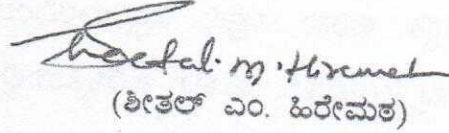 Sheetal. M. Hiremat
(ಶೀತಲ್ ಎಂ. ಹಿರೇಮಠ)